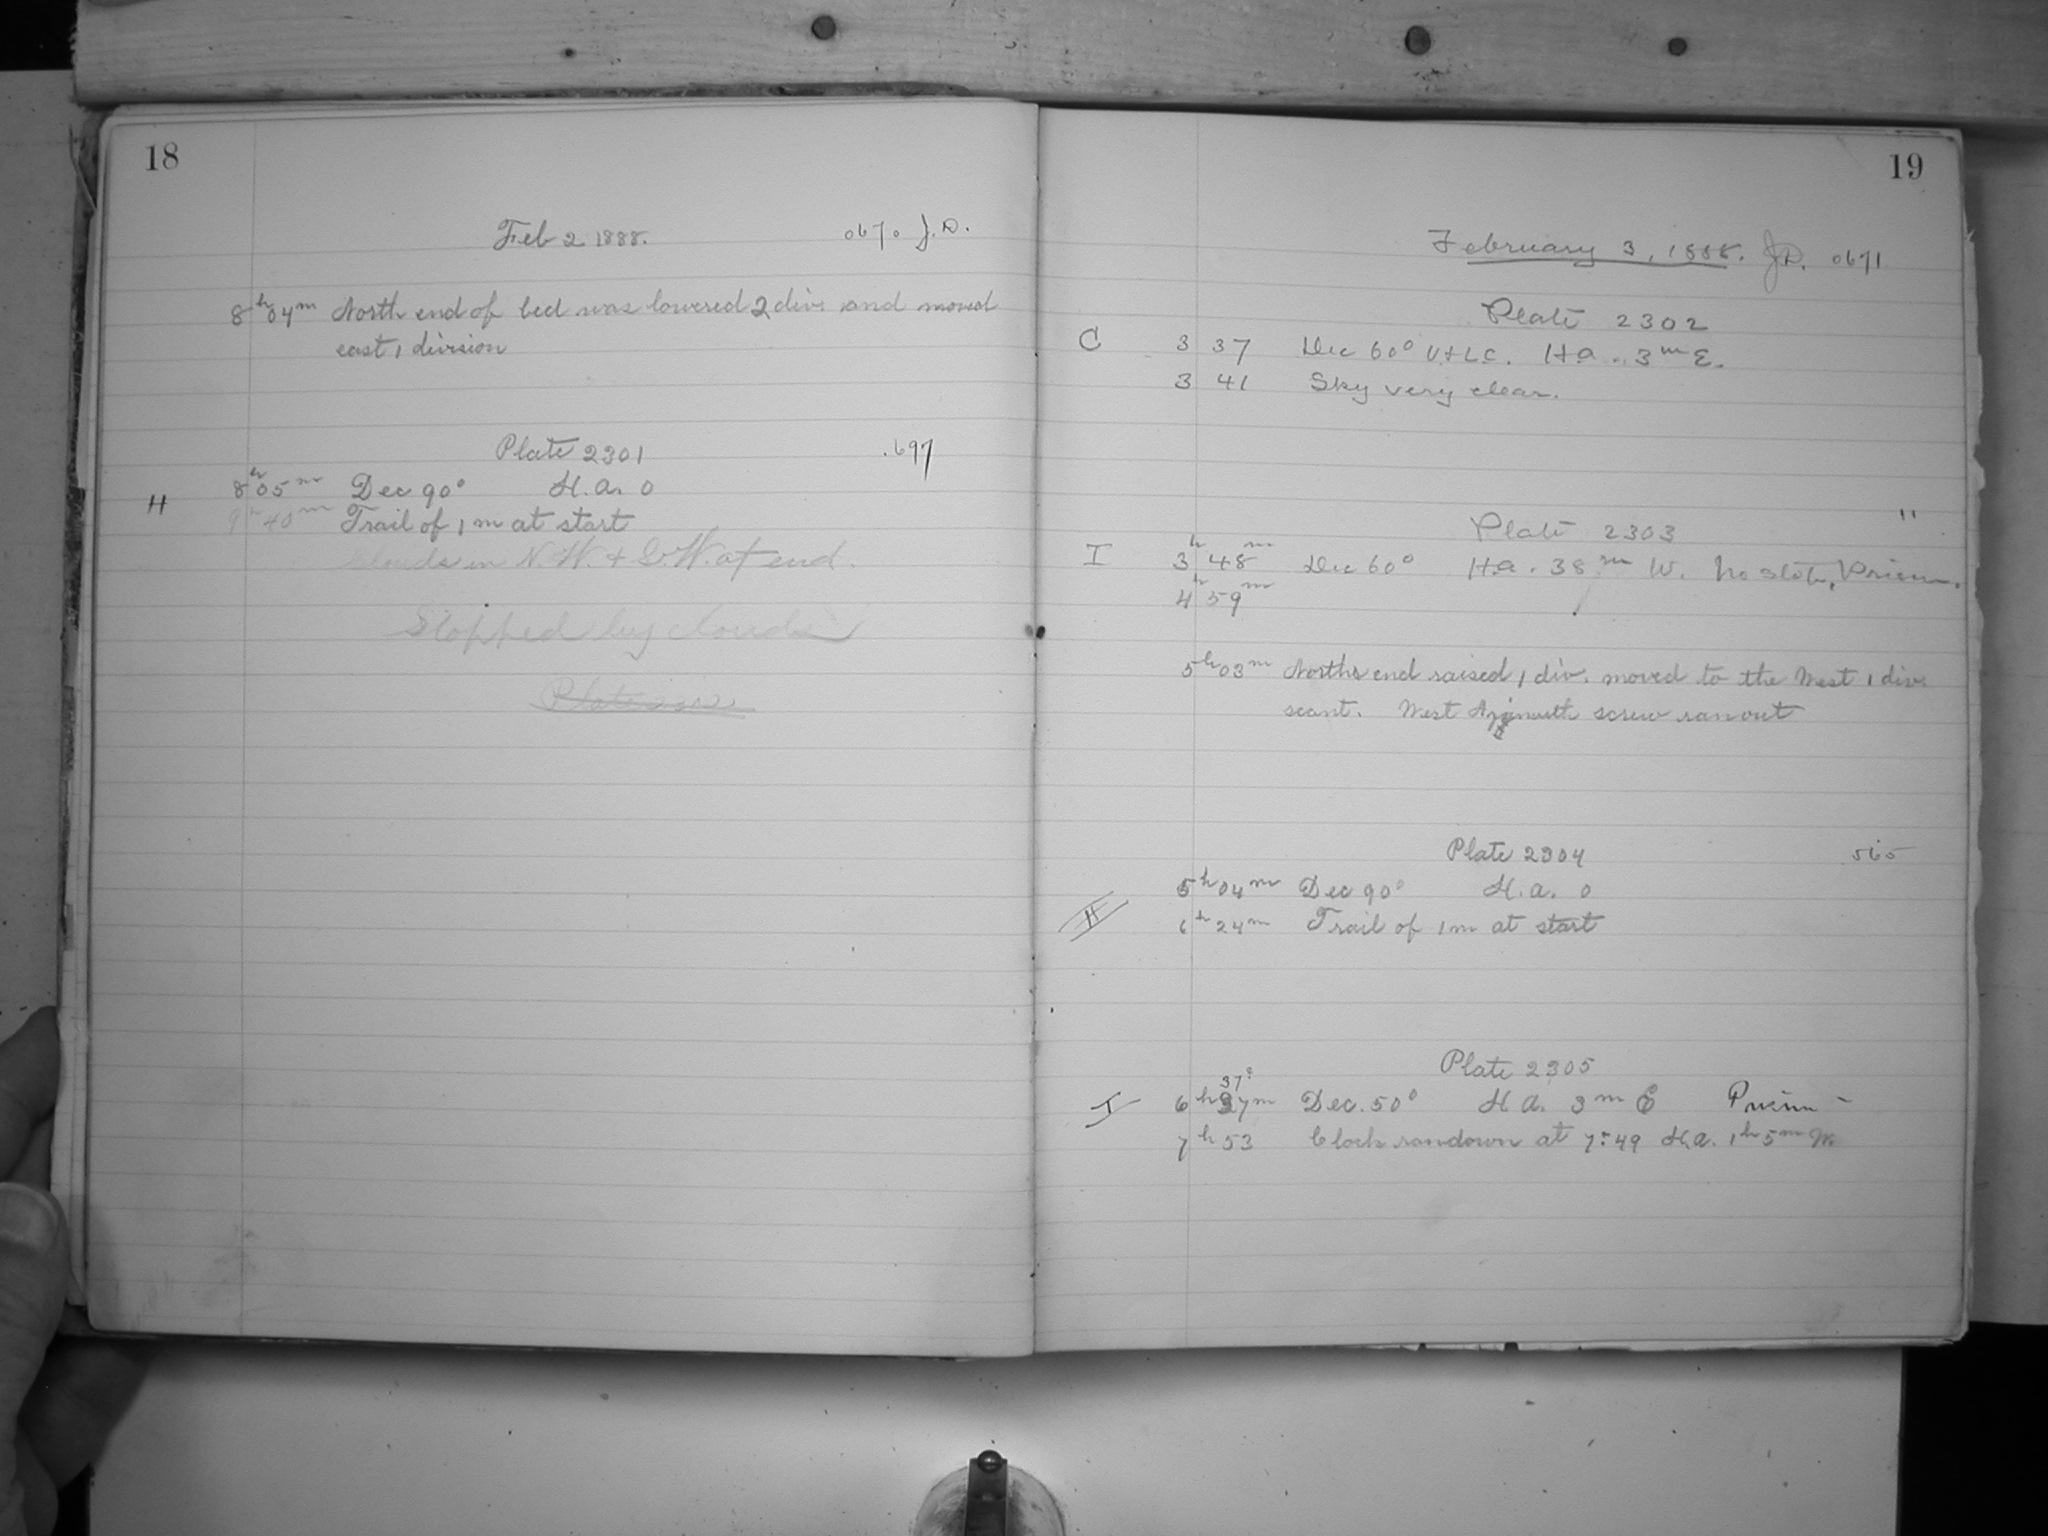 18
Feb 2 1888. 0670 J.D.
8h 04m North end of bed was lowered 2 div. and moved
east 1 division
Plate 2301 .697
8h 05m Dec 90° H.a. 0
H
9h 40m Trail of 1 m at start
Clouds in N.W. + S.W. at end.
Stopped by clouds
Plate
19
February 3, 1888. J.D. 0671
Plate 2302
C 3 37 Dec 60° U+LC. H.a. 3m E.
3 41 Sky very clear.
Plate 2303 "
I 3h 48m Dec 60° H.a. 38m W. No slit, Prism.
4h 59m
5h 03m North end raised 1 div. moved to the West 1 div.
scant. West Azimuth screw ran out
Plate 2304 565
5h 04m Dec 90° H.a. 0
H 6h 24m Trail of 1m at start
Plate 2305
37?
I 6h 37m Dec. 50° H.a. 3m E Prism –
7h 53 Clock ran down at 7:49 H.a. 1h 5m W.